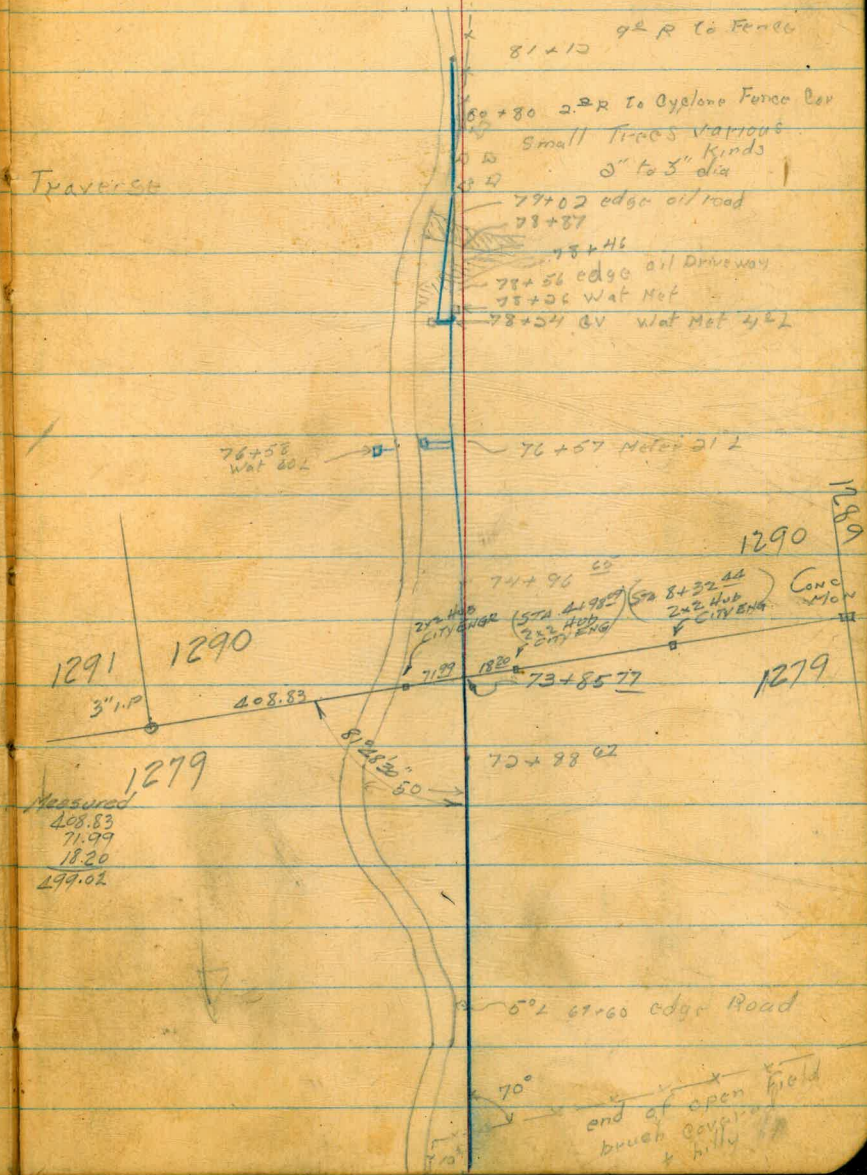 9⁰ R to Fence
81+12
80+80 2.⁸ R To Cyclone Fence Cor
Small Trees Various
Kinds
2" to 3" dia
Traverse
79+02 edge oil road
78+87
78+46
78+56 edge oil Driveway
78+26 Wat Met
78+24 GV Wat Met 4⁵ L
76+58
Wat 60 L
76+57 Meter 21' L
1289
1290
74+96 65
2x2 Hub
CITY ENGR
(STA 4+98
2x2 Hub
CITY ENG
(STA 8+32 44)
2x2 Hub
CITY ENG
Conc
Mon
1291 1290
3" I.P
408.83
71.99
18.20
73+85 77
1279
81°48'30"
50
72+88 62
1279
Measured
408.83
71.99
18.20
499.02
5⁰ L 67+60 edge Road
70°
end of open Field
brush covered
+ hilly